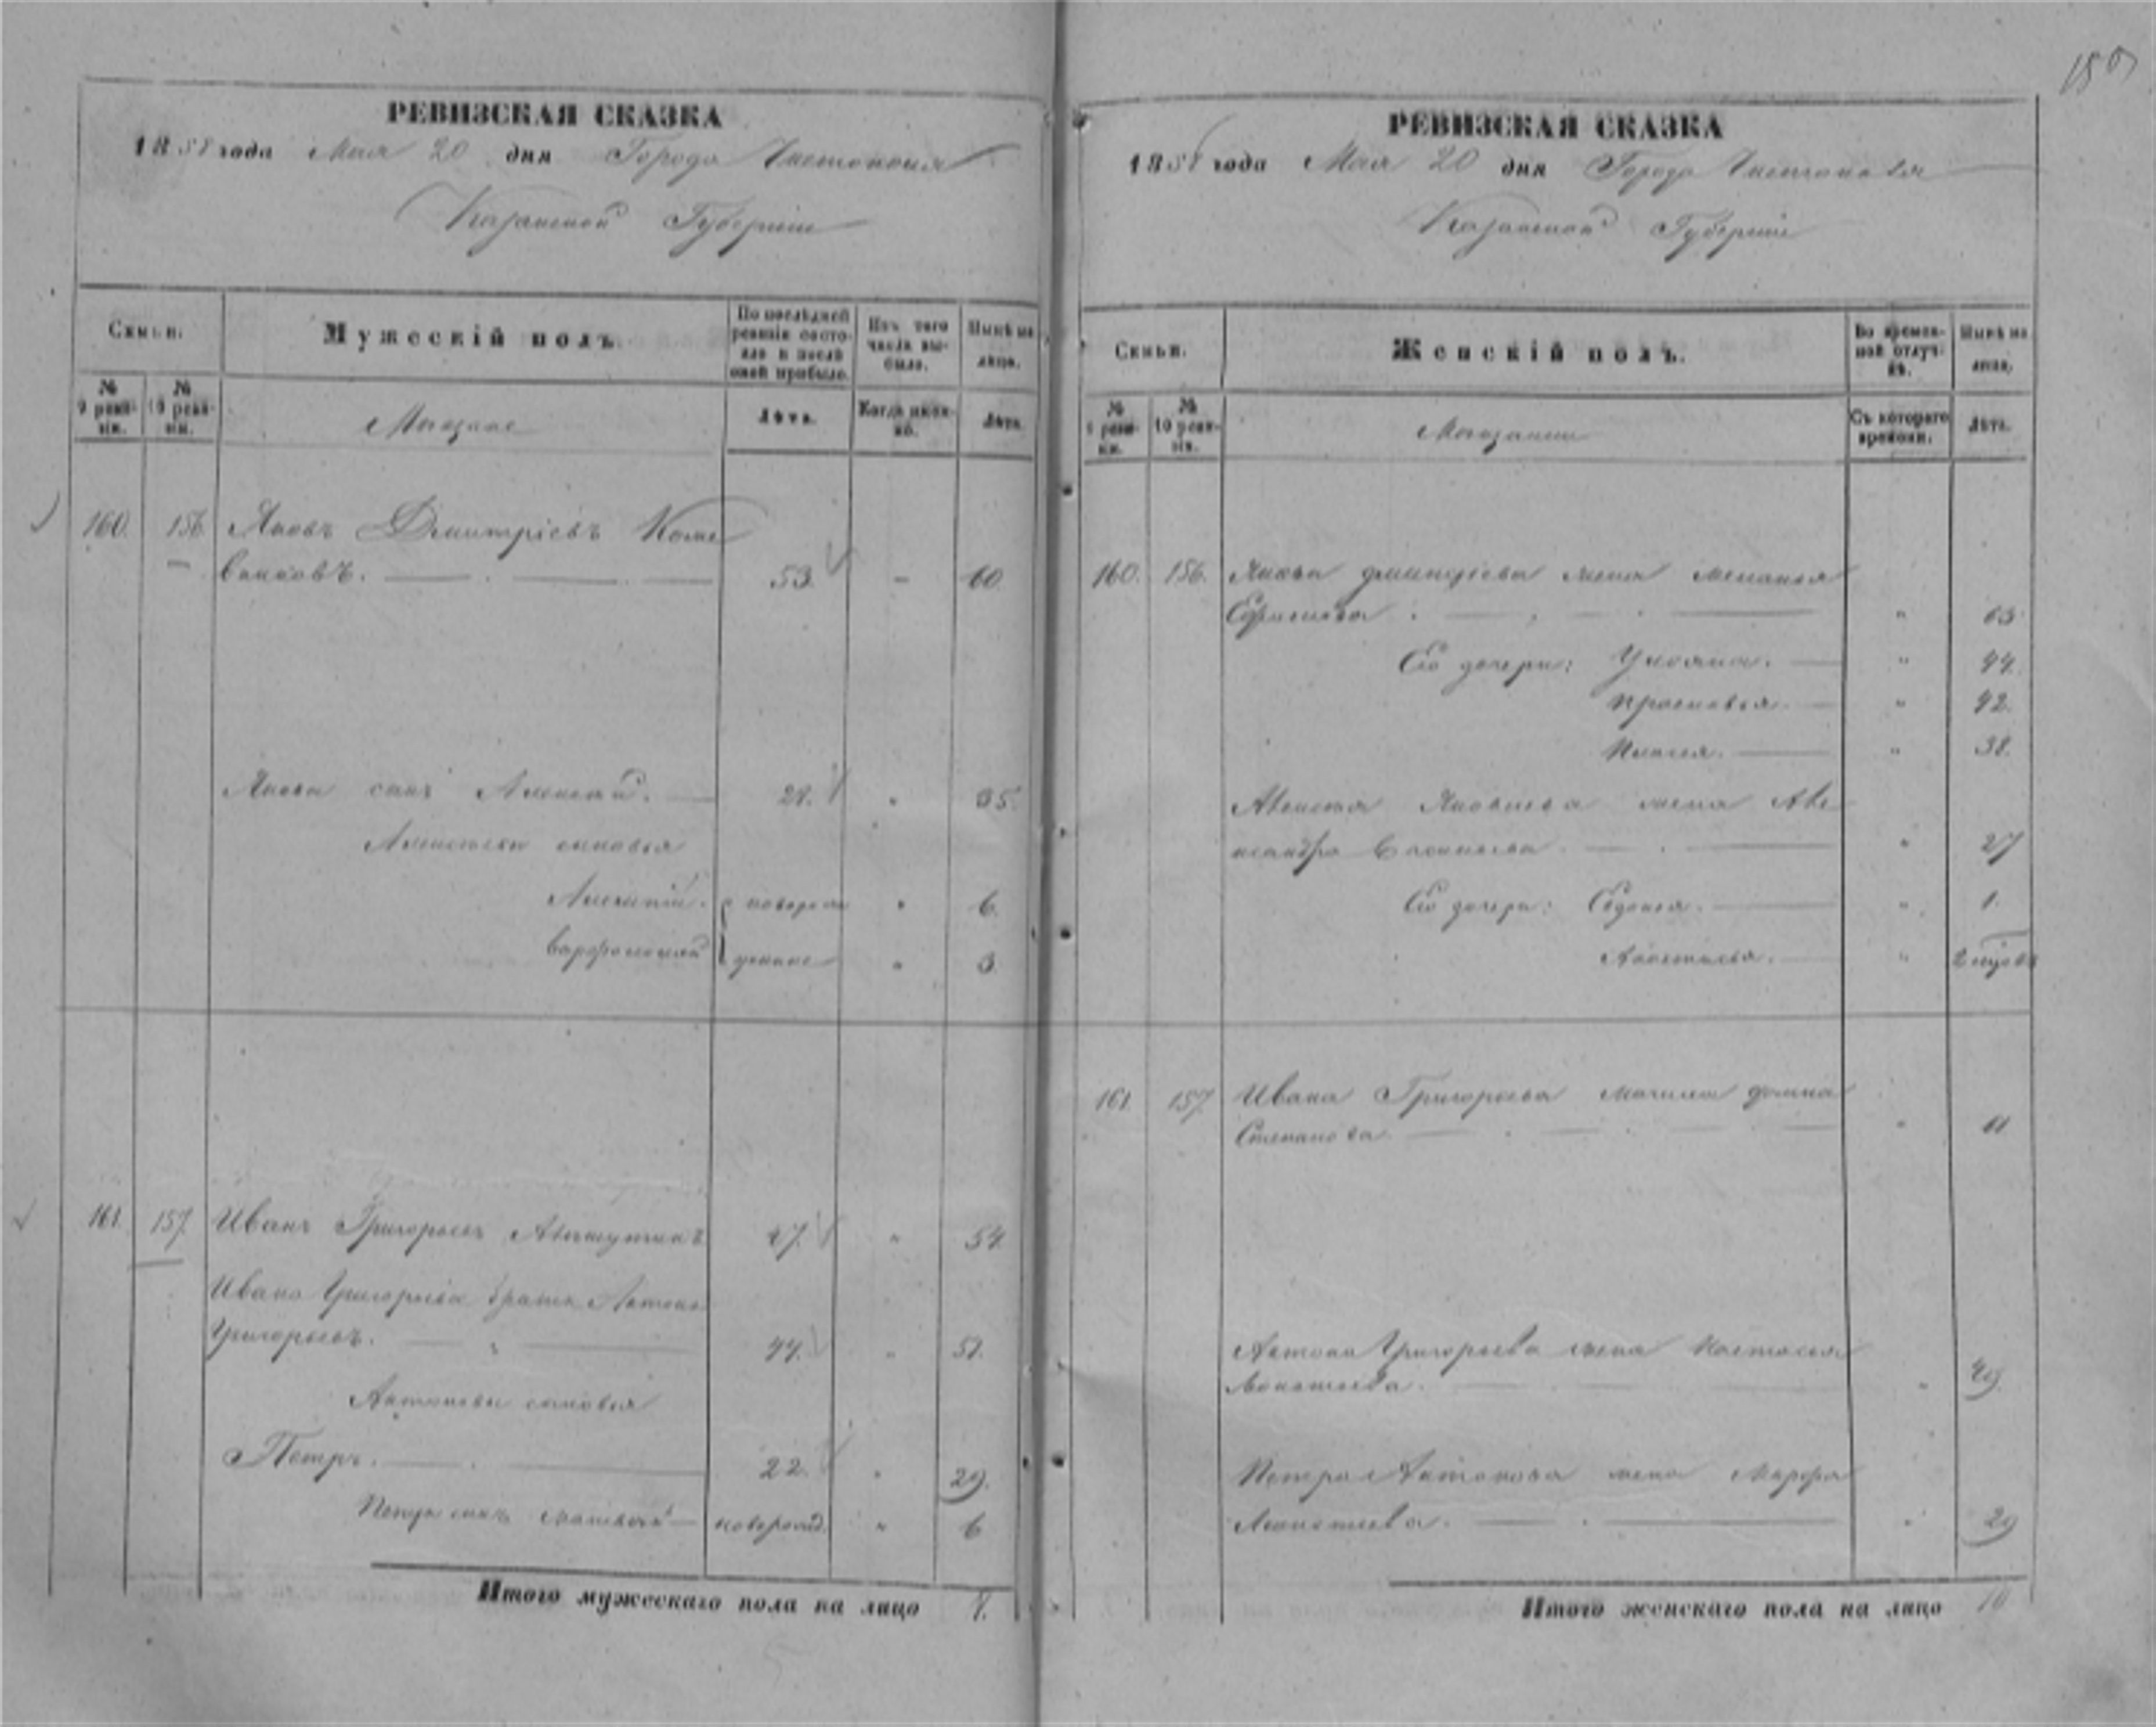 185
РЕВИЗСКАЯ СКАЗКА
1858 года Мая 20 дня Города Чистополя
Казанской Губернии
Семьи.
Мужескій полъ.
По послѣдней ревизіи состояло и послѣ оной прибыло.
Изъ того числа выбыло.
Нынѣ на лицо.
№ 9 ревизіи.
№ 10 ревизіи.
Мещане
Лѣта.
Когда именно.
Лѣта.
160. 156. Яковъ Дмитріевъ
53. - 60.
Якова сынъ Алексей. 28. " 35.
Алексеевы сыновья
Алексей. новорож " 6.
Варфоломей денные " 3.
161. 157. Иванъ Григорьевъ
47. " 54.
Ивана Григорьева братъ Антонъ
Григорьевъ. 44. " 51.
Антоновы сыновья
Петръ. 22. " 29.
Петра сынъ Матвей новорожд. " 6
Итого мужескаго пола на лицо 8.
РЕВИЗСКАЯ СКАЗКА
1858 года Мая 20 дня Города Чистополя
Казанской Губернии
Семьи.
Женскій полъ.
Во временной отлучкѣ.
Нынѣ на лицо.
№ 9 ревизіи.
№ 10 ревизіи.
Мещанки
Съ котораго времени.
Лѣта.
160. 156. Якова Дмитріева жена Меланья
Ефимова " 63
Его дочери: Ульяна. " 44.
Прасковья. " 42.
" 38.
Алексея Яковлева жена Але
ксандра Васильева " 27
Его дочери: Евдокья. " 1.
Анастасья. "
161 157 Ивана Григорьева мачиха Домна
Степанова "
Антона Григорьева жена Настасья
" 49.
Петра Антонова жена Марфа
" 29
Итого женскаго пола на лицо 10